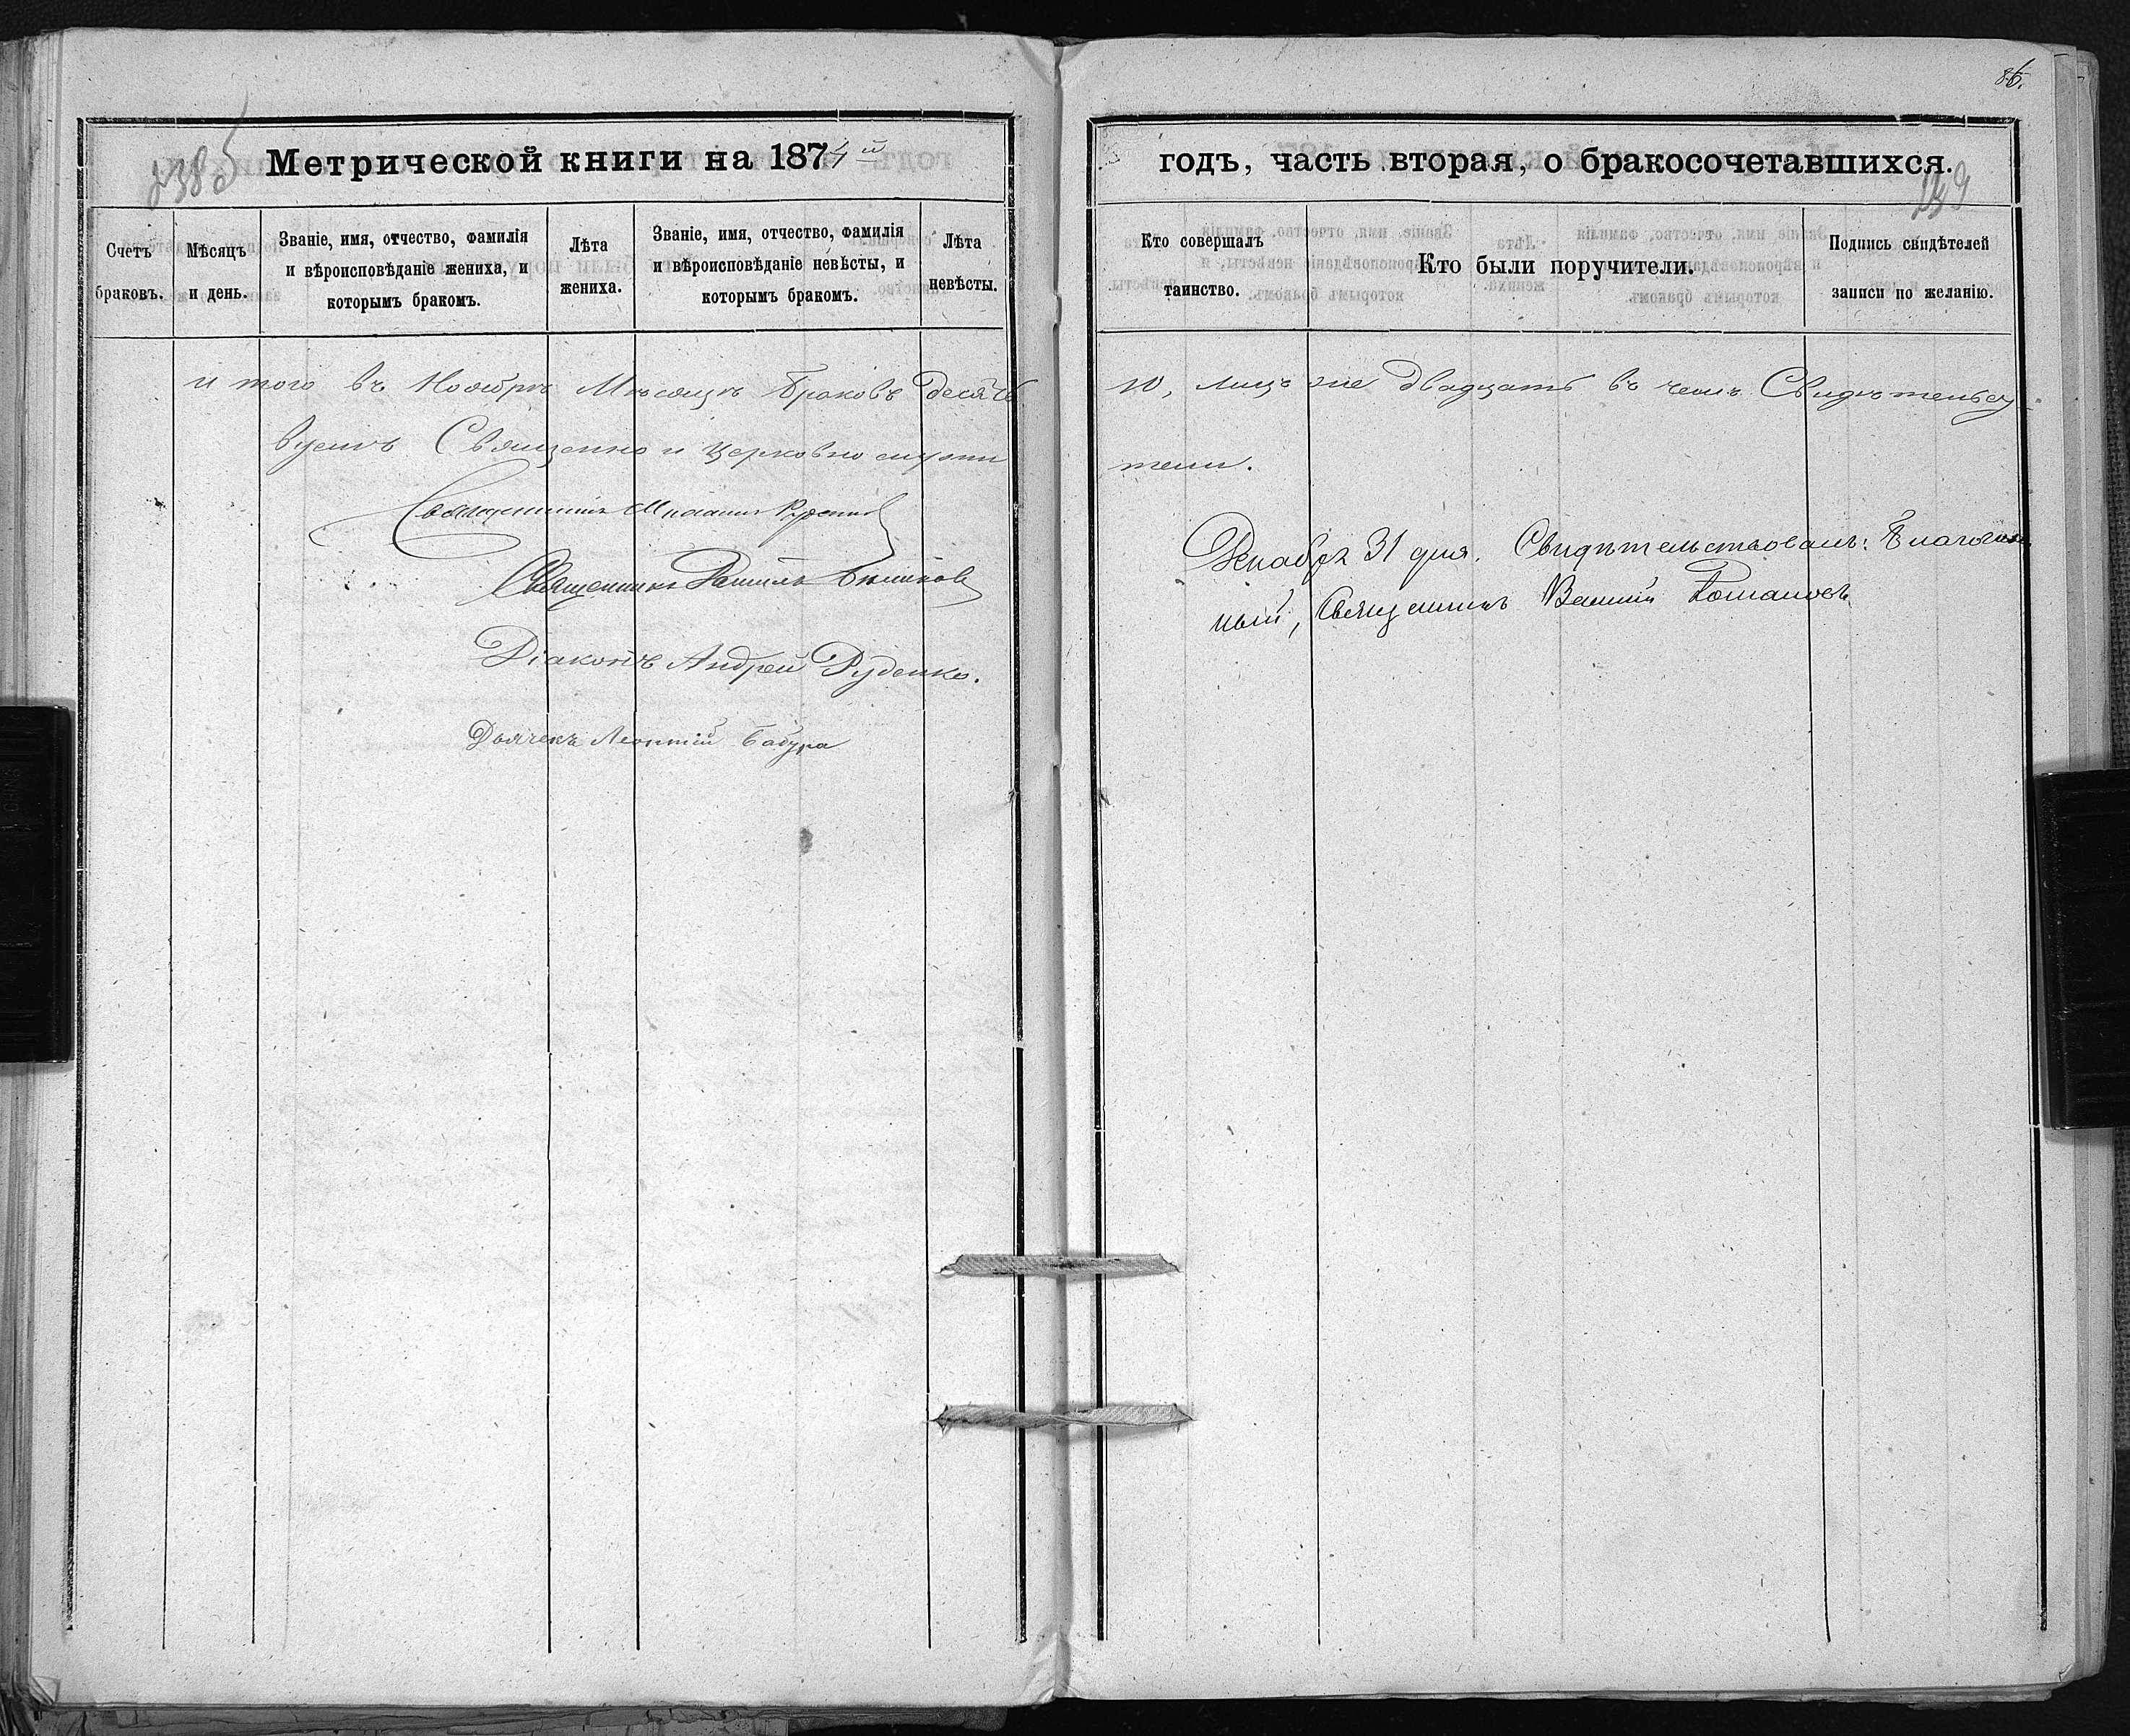 86.
238 об
Метрической книги на 1874 й
годъ, часть вторая, о бракосочетавшихся.
239
Счетъ браковъ.
Мѣсяцъ и день.
Званіе, имя, отчество, фамилія
и вѣроисповѣданіе жениха, и
которымъ бракомъ.
Лѣта жениха.
Званіе, имя, отчество, фамилія
и вѣроисповѣданіе невѣсты, и
которымъ бракомъ.
Лѣта невѣсты.
Кто совершалъ
таинство.
Кто были поручители.
Подпись свидѣтелей
записи по желанію.
и того въ Ноябрѣ Мѣсяцѣ браковъ десять
Священно и церковно служи
Священникъ
Священникъ Даніилъ
Діаконъ Андрей Руденко.
Дьячекъ Леонтій Бабура
10, лицъ же двадцать въ чемъ Свидѣтельсу
тели.
Декабря 31 дня. Свидѣтельствовалъ: Благочин
ный, Священникъ Василій Романовъ